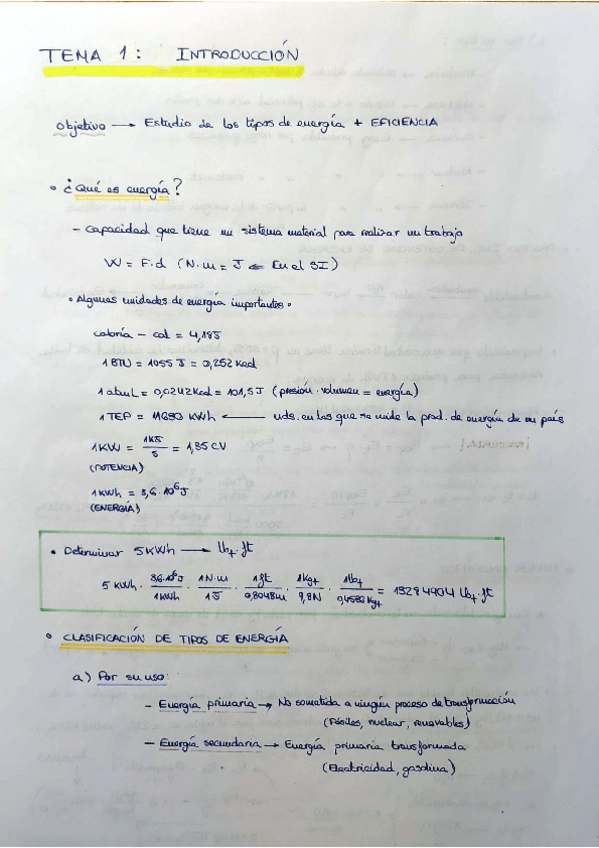 TEMA 1: INTRODUCCIÓN
Objetivo → Estudio de los tipos de energía + EFICIENCIA
• ¿Qué es energía?
- Capacidad que tiene un sistema material para realizar un trabajo
W = F.d (N.m = J ⇐ En el SI)
• Algunas unidades de energía importantes.
caloría - cal = 4,18J
1 BTU = 1055 J = 0,252 Kcal
1 atm L = 0,0242 Kcal = 101,5 J (presión . volumen = energía)
1 TEP = 11630 KWh ← uds. en las que se mide la prod. de energía de un país
1KW = 1KJ/s = 1,35 CV
(POTENCIA)
1KWh = 3,6.10⁶J
(ENERGÍA)
• Determinar 5KWh → lbf.ft
5 KWh . 3,6.10⁶J/1KWh . 1N.m/1J . 1ft/0,3048m . 1Kgf/9,8N . 1lbf/0,4536Kgf = 13284904 lbf.ft
• CLASIFICACIÓN DE TIPOS DE ENERGÍA
a) Por su uso:
- Energía primaria → No sometida a ningún proceso de transformación
(Fósiles, nuclear, renovables)
- Energía secundaria → Energía primaria transformada
(Electricidad, gasolina)